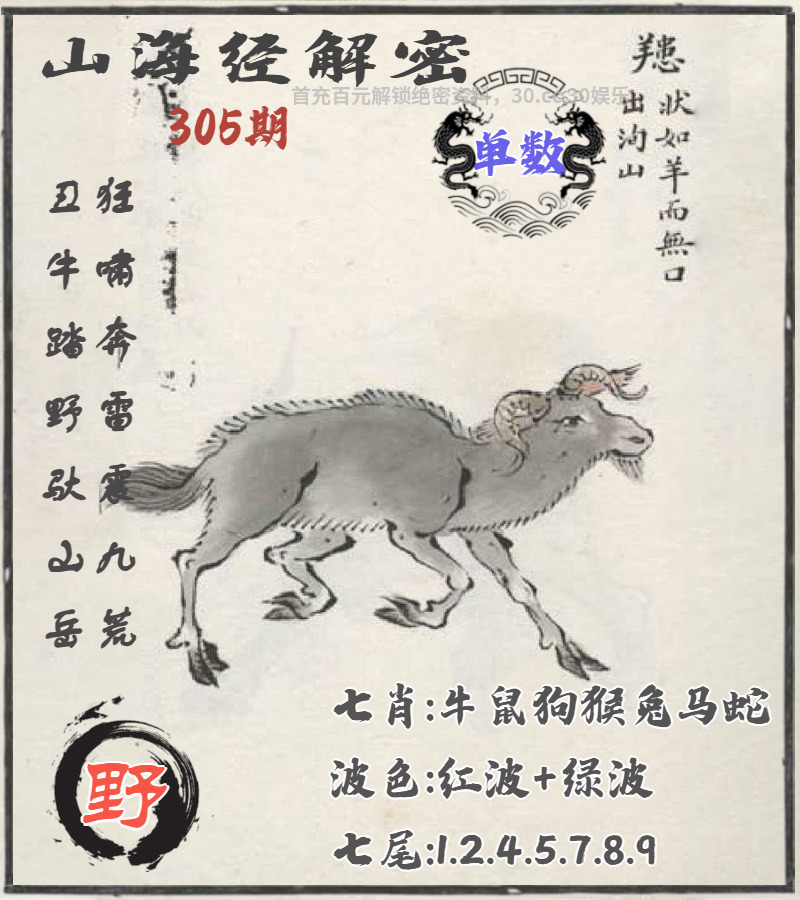 山海经解密
首充百元解锁绝密资料，30.cc30娱乐
305期
单数
䍺
狀如羊而無口
出洵山
丑牛踏野驮山岳
狂啸奔雷震九荒
七肖:牛鼠狗猴兔马蛇
波色:红波+绿波
七尾:1.2.4.5.7.8.9
野